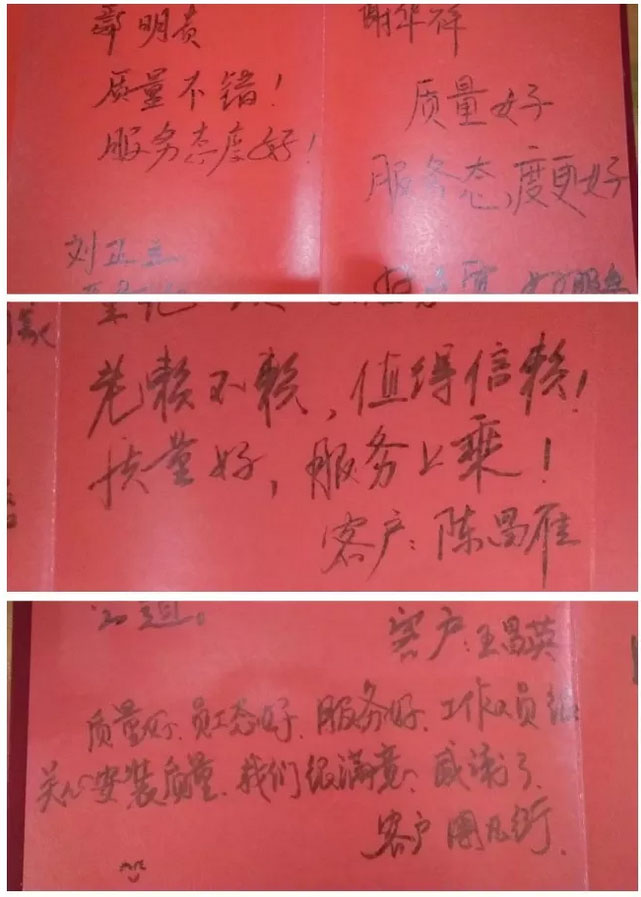 明贵
质量不错!
服务态度好!
刘正立
谢华祥
质量好
服务态度更好
老赖不赖，值得信赖!
质量好，服务上乘!
客户：陈昌雁
道。
客户：王昌英
质量好、员工态好、服务好、工作人员很
关心安装质量、我们很满意、感谢了、
客户 周凡